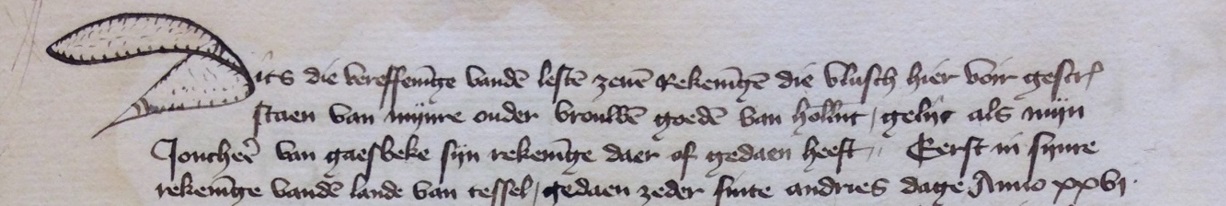 Dits die vereffeninge vanden lesten zeven Rekeningen die vlusch hier voir gescr
staen van mynre ouder vrouwen goeden van hollant, gelijc als mijn
Joncheer van gaesbeke sijn rekeninge daer of gedaen heeft, Eerst in synre
rekeninge vanden lande van tessel, gedaen zeder sinte andries dage Anno xxvj.